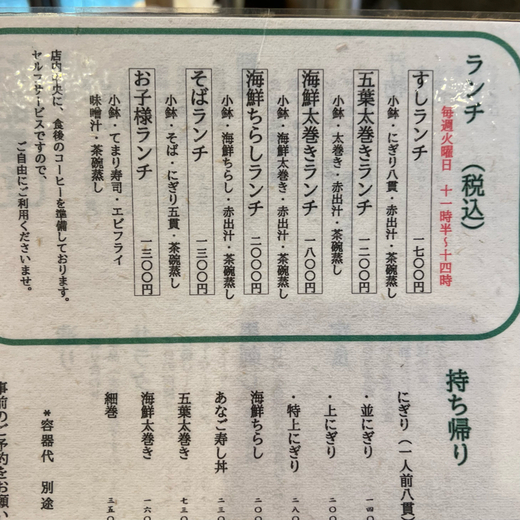 ランチ（税込）
毎週火曜日 十一時半～十四時
すしランチ 一七〇〇円
小鉢・にぎり八貫・赤出汁・茶碗蒸し
五葉太巻きランチ 一二〇〇円
小鉢・太巻き・赤出汁・茶碗蒸し
海鮮太巻きランチ 一八〇〇円
小鉢・海鮮太巻き・赤出汁・茶碗蒸し
海鮮ちらしランチ 二〇〇〇円
小鉢・海鮮ちらし・赤出汁・茶碗蒸し
そばランチ 一三〇〇円
小鉢・そば・にぎり五貫・茶碗蒸し
お子様ランチ 一三〇〇円
小鉢・てまり寿司・エビフライ
味噌汁・茶碗蒸し
店内中央に、食後のコーヒーを準備しております。
セルフサービスですので、
ご自由にご利用くださいませ。
持ち帰り
にぎり（一人前八貫）
・並にぎり
・上にぎり
・特上にぎり
海鮮ちらし
あなご寿し丼
五葉太巻き
海鮮太巻き
細巻
＊容器代 別途
事前のご予約をお願い